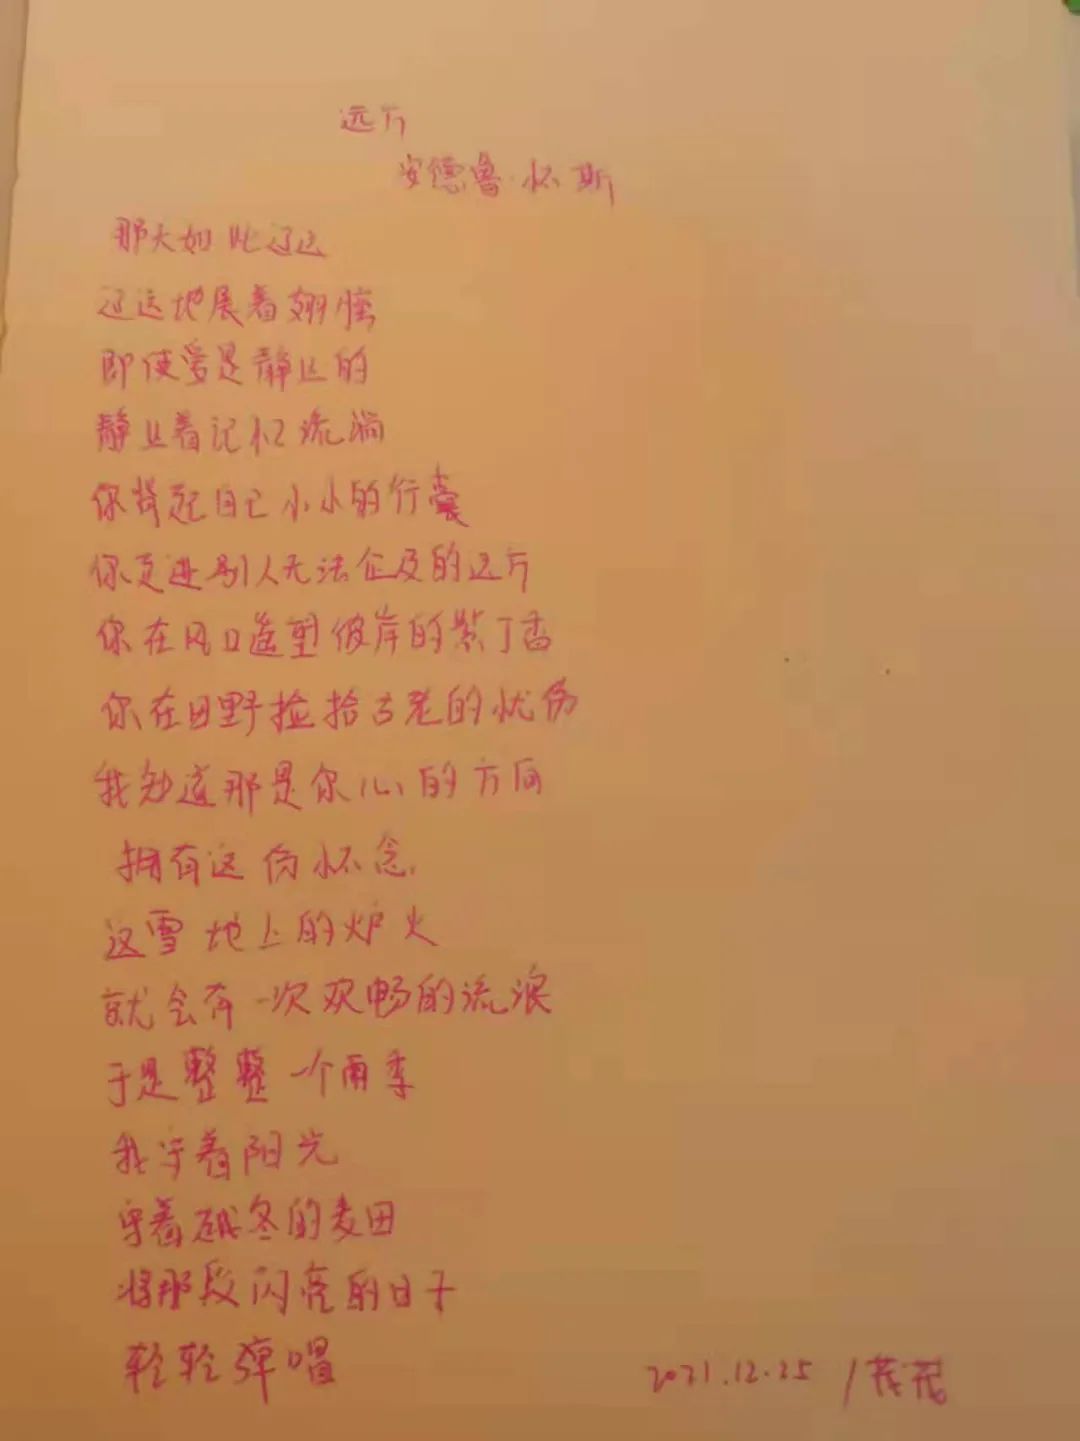 远方
安德鲁·怀斯
那天如此辽远
辽远地展着翅膀
即使爱是静止的
静止着记忆流淌
你背起自己小小的行囊
你走进别人无法企及的远方
你在风口遥望彼岸的紫丁香
你在田野捡拾古老的忧伤
我知道那是你心的方向
拥有这份怀念
这雪地上的炉火
就会有一次欢畅的流浪
于是整整一个雨季
我守着阳光
守着越冬的麦田
将那段闪亮的日子
轻轻弹唱
2021.12.25 /茂茂